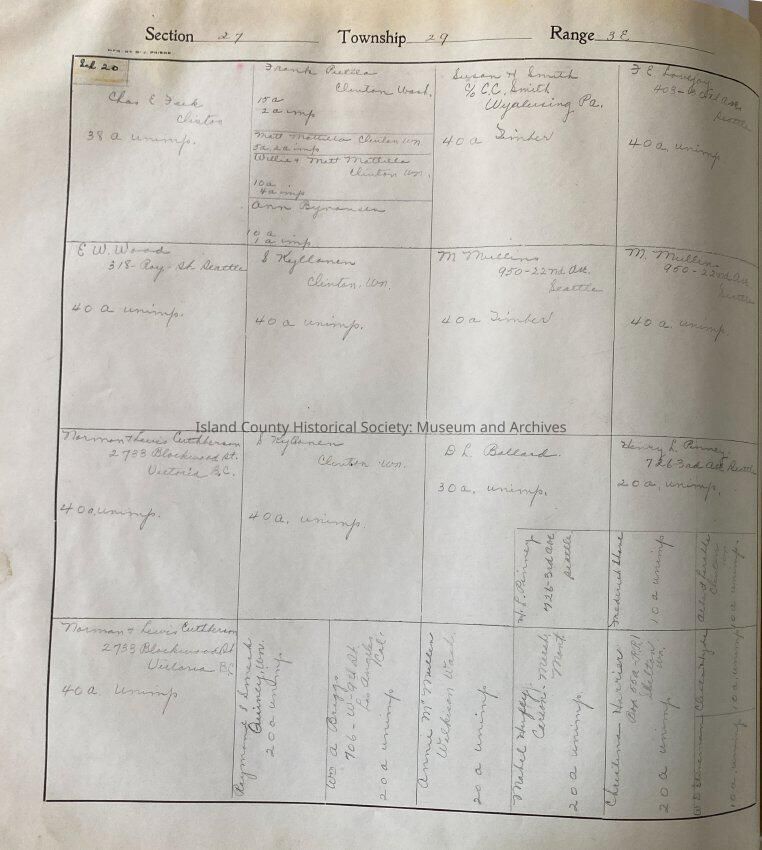 Section 27 Township 29 Range 3E
Sch 20
Chas E Fack
Clinton
38 a unimp.
Frank Puttla
Clinton Wash.
15 a
2 a imp
Matt Mattilla Clinton Wn
5a, 2a imp
Willie & Matt Mattilla
Clinton Wn.
10a
4a imp
Ann Bynansen
10 a
1 a imp.
Susan H Smith
c/o C.C. Smith
Wyalusing Pa.
40 a Timber
F E Lovejoy
Seattle
40 a. unimp
E W. Wood
318- Roy- St. Seattle
40 a unimp.
S Kyllonen
Clinton. Wn.
40 a unimp.
M Mullins
950-22nd Ave.
Seattle
40 a Timber
M. Mullins
950-22nd Ave
Seattle
40 a. unimp.
Island County Historical Society: Museum and Archives
Norman & Lewis Cuthberson
2733 Blackwood St.
Victoria B.C.
40 a, unimp.
S Kyllonen
Clinton Wn.
40 a. unimp.
D L. Ballard.
30 a, unimp.
Henry L. Pinney
726-3rd Ave Seattle
20 a, unimp.
H. L. Pinney
726-3rd Ave
Seattle
Frederick Shave
10 a unimp
Clinton
Wn
10 a unimp.
Norman & Lewis Cuthberson
2733 Blackwood St
Victoria B.C.
40 a Unimp
Raymond S
Quincy, Wn.
20 a unimp
Wm A Briggs
706-W-
Los Angeles
Cal.
20 a unimp
Annie Mc Mullen
Wilkeson Wash.
20 a unimp
Mabel
Mont
20 a unimp.
Christina Harrier
Box
Shelton
Wn.
20 a unimp
10 a unimp
10 a unimp